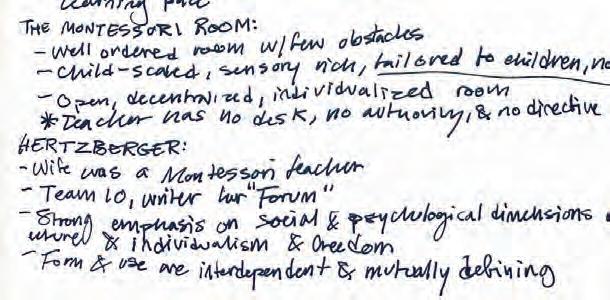 learning pace
THE MONTESSORI ROOM:
- Well ordered room w/ few obstacles
- Child-scaled, sensory rich, tailored to children, no
- Open, decentralized, individualized room
* Teacher has no desk, no authority, & no directive
HERTZBERGER:
- Wife was a Montessori teacher
- Team 10, writer for "Forum"
- Strong emphasis on social & psychological dimensions
& individualism & freedom
- Form & use are interdependent & mutually defining